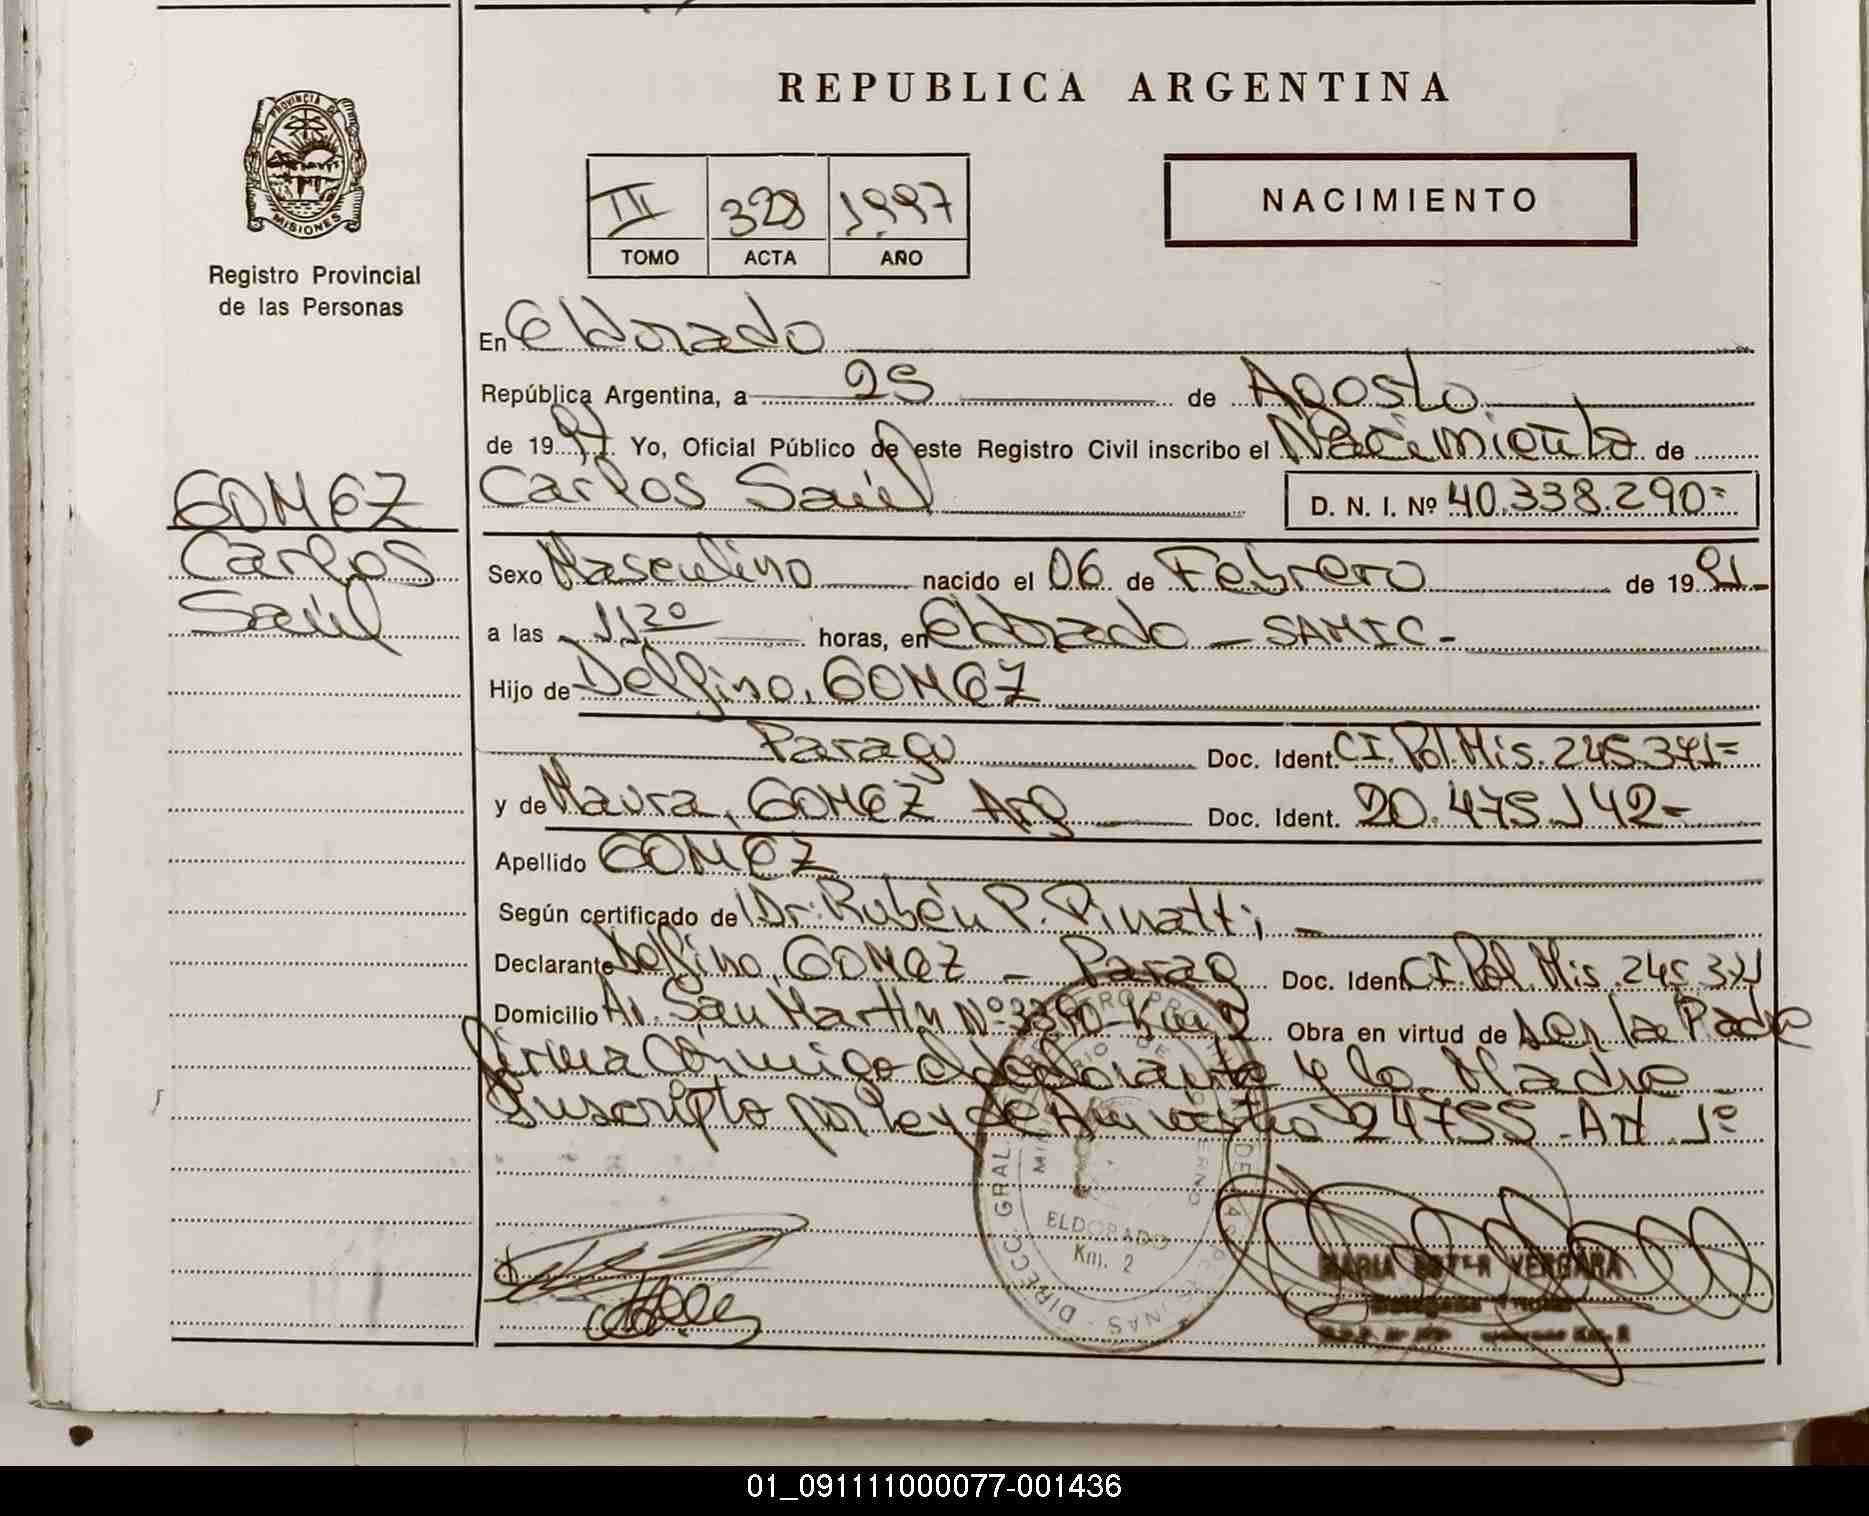 REPUBLICA ARGENTINA
PROVINCIA DE
MISIONES
Registro Provincial
de las Personas
III 328 1997
TOMO ACTA AÑO
NACIMIENTO
En Eldorado
República Argentina, a 25 de Agosto
de 1997. Yo, Oficial Público de este Registro Civil inscribo el Nacimiento de
GOMEZ
Carlos Saúl D. N. I. Nº 40.338.290=
Carlos
Saúl
Sexo Masculino nacido el 06 de Febrero de 1991.-
a las 11,20 horas, en Eldorado - SAMIC-
Hijo de Delfino, GOMEZ
Parag Doc. Ident. CI. Pol. Mis. 245.371=
y de Maura, GOMEZ Arg Doc. Ident. 20.475.142-
Apellido GOMEZ
Según certificado del Dr: Rubén P. Pinatti -
Declarante Delfino, GOMEZ - Parag Doc. Ident. CI. Pol. Mis. 245.371
Domicilio Av. San Martín Nº 3390- Km 2 Obra en virtud de ser la Padre
firma conmigo el declarante y la Madre
Suscripto por ley de Amnistia 24755 - Art 1º
DIRECC. GRAL
ELDORADO
Km. 2
MARIA ESTER VERGARA
01_091111000077-001436